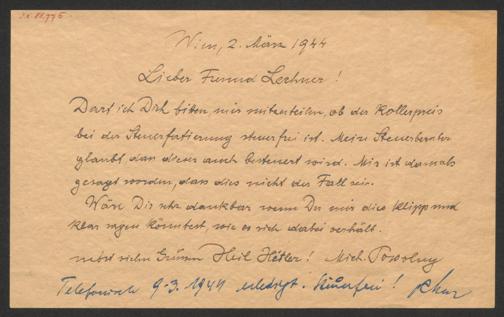 Wien, 2. März 1944
Lieber Freund Lechner!
Darf ich Dich bitten, mir mitzuteilen, ob der Kollerpreis
bei der Steuerfatierung steuerfrei ist. Mein Steuerberater
glaubt, dass dieser auch besteuert wird. Mir ist damals
gesagt worden, dass dies nicht der Fall sei.
Wäre Dir sehr dankbar wenn Du mir dies klipp und
klar sagen könntest, wie es sich dabei verhält.
nebst vielen Grüssen Heil Hitler! Mich. Powolny
Telefonisch 9.3.1944 erledigt. Steuerfrei!